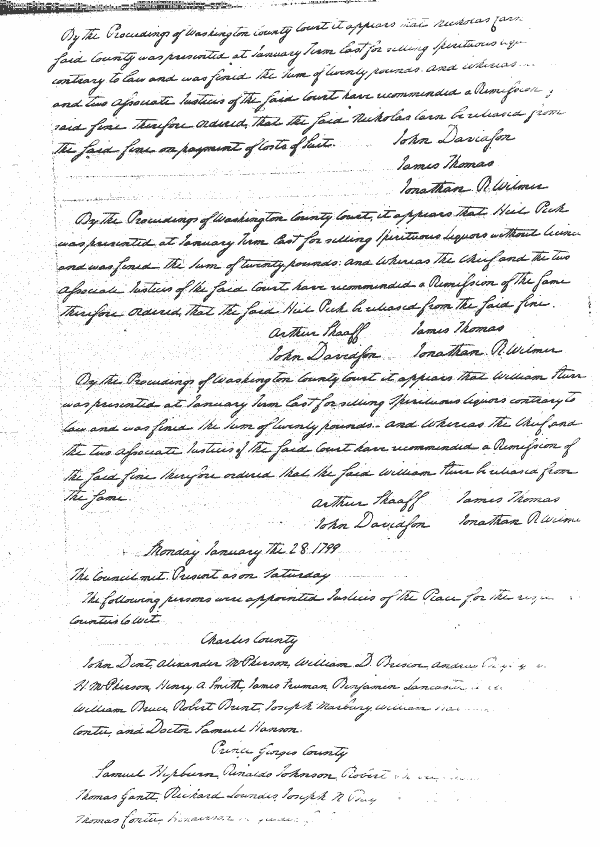 By the Proceedings of Washington County Court it appears that Nicholas
said County was presented at January Term last for selling Spirituous
contrary to law and was fined the Sum of twenty pounds. and Whereas
and two Associate Justices of the said Court have recommended a Remission
said fine therefore ordered, that the said Nicholas be released from
the said fine on payment of Costs of Suit.
John Davidson
James Thomas
Jonathan R. Wilmer
By the Proceedings of Washington County Court, it appears that Heil Peck
was presented at January Term last for selling Spirituous Liquors without
and was fined the Sum of twenty pounds: and Whereas the Chief and the two
Associate Justices of the said Court have recommended a Remission of the same
therefore ordered, that the said Heil Peck be released from the said fine.
Arthur Shaaff James Thomas
John Davidson Jonathan R. Wilmer
By the Proceedings of Washington County Court it appears that William
was presented at January Term last for selling Spirituous liquors contrary to
law and was fined the Sum of twenty pounds. and Whereas the Chief and
the two Associate Justices of the said Court have recommended a Remission of
the said fine therefore ordered that the said William be released from
the same
Arthur Shaaff James Thomas
John Davidson Jonathan R Wilmer
Monday January the 28. 1799
The Council met. Present as on Saturday
The following persons were appointed Justices of the Peace for the
Counties to Wit
Charles County
John Dent, Alexander McPherson, William D. Briscoe, Andrew
H McPherson, Henry A Smith, James Truman, Benjamin Lancaster
William Bruce, Robert Brent, Joseph Marbury, William
Contee, and Doctor Samuel Hanson.
Prince Georges County
Samuel Hepburn, Rinaldo Johnson, Robert
Thomas Gantt, Richard Lowndes, Joseph N
Thomas Contee,